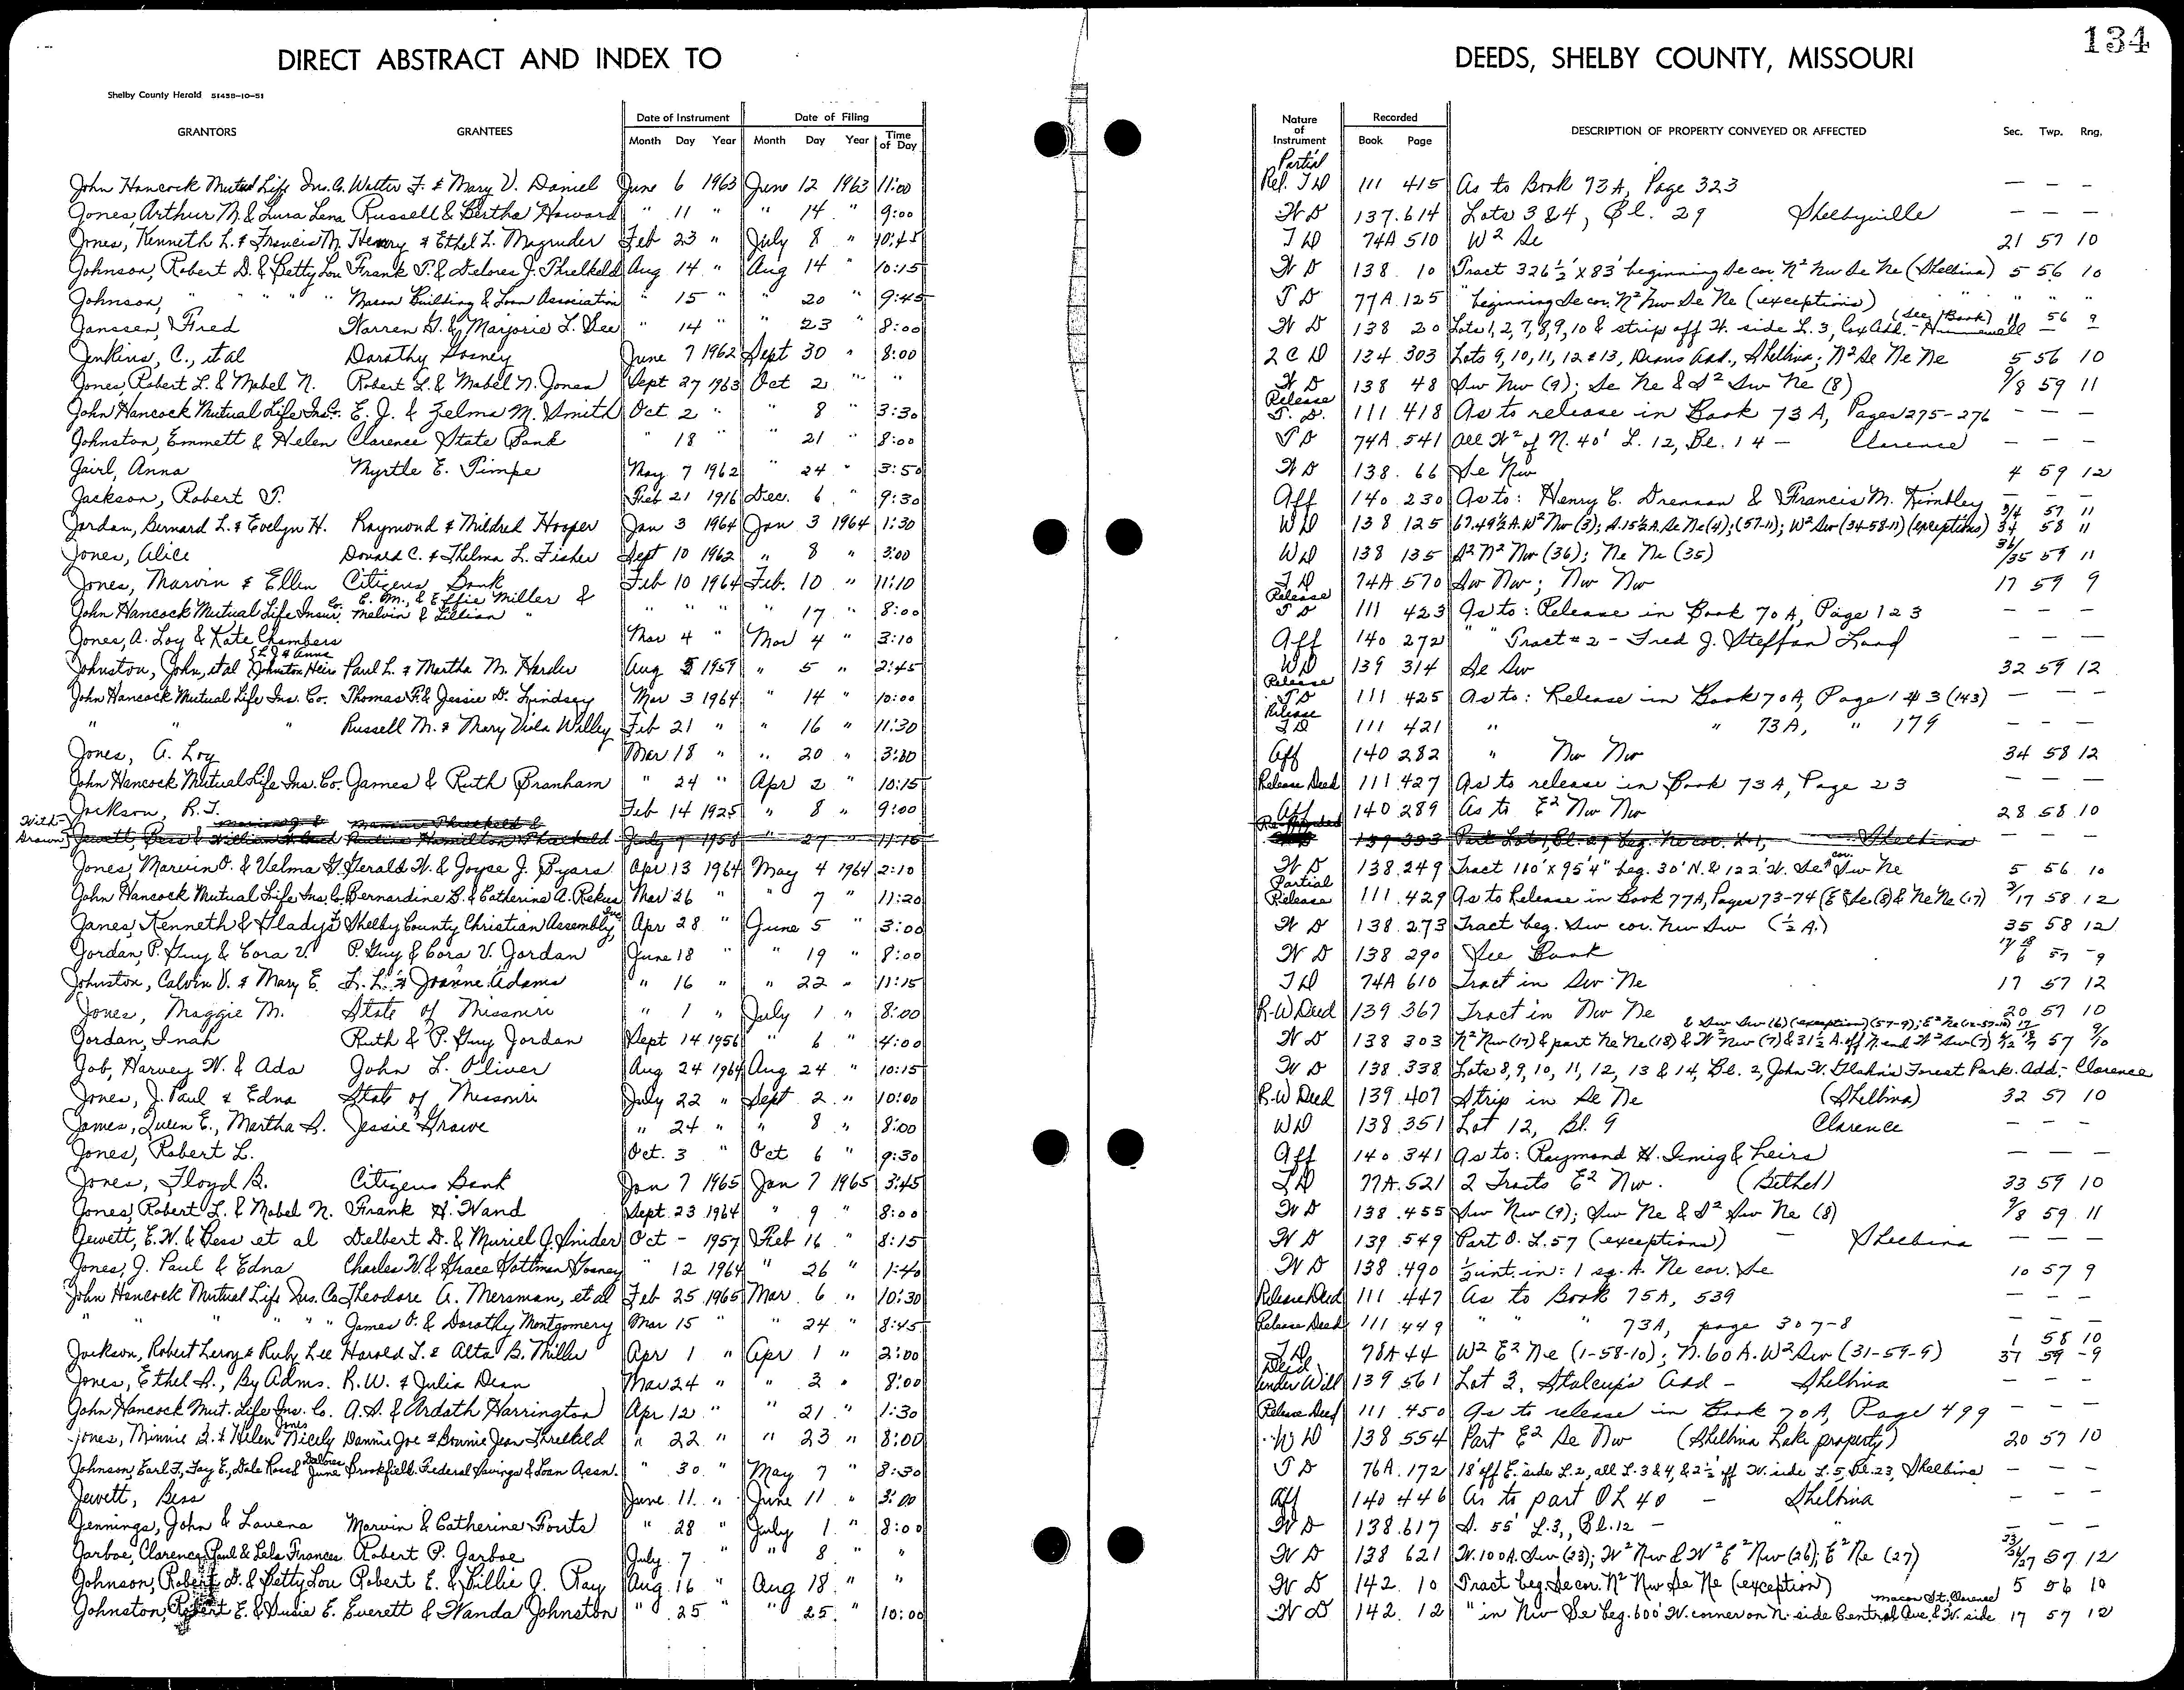 134
DIRECT ABSTRACT AND INDEX TO DEEDS, SHELBY COUNTY, MISSOURI
Shelby County Herald 51458-10-51
GRANTORS GRANTEES Date of Instrument Date of Filing Nature of Instrument Recorded DESCRIPTION OF PROPERTY CONVEYED OR AFFECTED Sec. Twp. Rng.
Month Day Year Month Day Year Time of Day Book Page
John Hancock Mutual Life Ins. Co. Walter F. & Mary V. Daniel June 6 1963 June 12 1963 11:00 Partial Rel. T D 111 415 As to Book 73A, Page 323 — — —
Jones, Arthur M. & Lura Lena Russell & Bertha Howard " 11 " " 14 " 9:00 W D 137 614 Lots 3 & 4, Bl. 29 Shelbyville — — —
Jones, Kenneth L. & Francis M. Henry & Ethel L. Magruder Feb 23 " July 8 " 10:45 T D 74A 510 W² Se 21 57 10
Johnson, Robert D. & Betty Lou Frank T. & Delores J. Threlkeld Aug 14 " Aug 14 " 10:15 W D 138 10 Tract 326½' x 83' beginning Se cor. N² Nw Se Ne (Shelbina) 5 56 10
Johnson, " " " " Macon Building & Loan Association " 15 " " 20 " 9:45 T D 77A 125 " beginning Se cor. N² Nw Se Ne (exceptions) " " "
Janssen, Fred Warren G. & Marjorie L. Lee " 14 " " 23 " 8:00 W D 138 20 Lots 1, 2, 7, 8, 9, 10 & strip off W. side L. 3, Cox Add. - Hunnewell (See Book) 11 56 9
Jenkins, C., et al Dorothy Gosney June 7 1962 Sept 30 " 8:00 2 C D 134 303 Lots 9, 10, 11, 12 & 13, Deans Add., Shelbina; N² Se Ne Ne 5 56 10
Jones, Robert L. & Mabel N. Robert L. & Mabel N. Jones Sept 27 1963 Oct 2 " " W D 138 48 Sw Nw (9); Se Ne & S² Sw Ne (8) 9/8 59 11
John Hancock Mutual Life Ins. Co. E. J. & Zelma M. Smith Oct 2 " " 8 " 3:30 Release T. D. 111 418 As to release in Book 73A, Pages 275-276 — — —
Johnston, Emmett & Helen Clarence State Bank " 18 " " 21 " 8:00 T D 74A 541 All W² of N. 40' L. 12, Bl. 14 — Clarence — — —
Jairl, Anna Myrtle E. Timpe May 7 1962 " 24 " 3:50 W D 138 66 Se Nw 4 59 12
Jackson, Robert T. Feb 21 1916 Dec. 6 " 9:30 Aff 140 230 As to: Henry C. Drennan & Francis M. Kimbley — — —
Jordan, Bernard L. & Evelyn H. Raymond & Mildred Hooper Jan 3 1964 Jan 3 1964 1:30 W D 138 125 67.49½ A. W² Nw (3); S. 15½ A. Se Ne (4); (57-11); W² Sw (34-58-11) (exceptions) 3/4 57 11 34 58 11
Jones, Alice Donald C. & Thelma L. Fisher Sept 10 1962 " 8 " 3:00 W D 138 135 S² N² Nw (36); Ne Ne (35) 36/35 59 11
Jones, Marvin & Ellen Citizens Bank Feb 10 1964 Feb. 10 " 11:10 T D 74A 570 Sw Nw; Nw Nw 17 59 9
John Hancock Mutual Life Insur. Co. E. M. & Effie Miller & Melvin & Lillian " " " " " 17 " 8:00 Release T D 111 423 As to: Release in Book 70A, Page 123 — — —
Jones, A. Loy & Kate Chambers Mar 4 " Mar 4 " 3:10 Aff 140 272 " " Tract #2 - Fred J. Steffan Land — — —
Johnston, John, et al (L J & Anna Johnston Heirs Paul L. & Martha M. Harder Aug 5 1959 " 5 " 2:45 W D 139 314 Se Sw 32 59 12
John Hancock Mutual Life Ins. Co. Thomas F. & Jessie D. Lindsey Mar 3 1964 " 14 " 10:00 Release T D 111 425 As to: Release in Book 70A, Page 143 (143) — — —
" " " Russell M. & Mary Viola Willey Feb 21 " " 16 " 11:30 Release T D 111 421 " " 73A, " 179 — — —
Jones, A. Loy Mar 18 " " 20 " 3:00 Aff 140 282 " Nw Nw 34 58 12
John Hancock Mutual Life Ins. Co. James & Ruth Branham " 24 " Apr 2 " 10:15 Release Deed 111 427 As to release in Book 73A, Page 23 — — —
Jackson, R. T. Feb 14 1925 " 8 " 9:00 Aff 140 289 As to E² Nw Nw 28 58 10
With-drawn Jewett, Bess & Pauline Hamilton Threlkeld July 9 1958 " 27 " 11:15 139 333 Part Lot 1, Bl. 29 beg. Ne cor. L-1, Shelbina — — —
Jones, Marvin O. & Velma G. Gerald W. & Joyce J. Byars Apr 13 1964 May 4 1964 2:10 W D 138 249 Tract 110' x 95'4" beg. 30' N. & 122' W. Se cor. Sw Ne 5 56 10
John Hancock Mutual Life Ins. Co. Bernardine B. & Catherine A. Rekus Mar 26 " " 7 " 11:20 Partial Release 111 429 As to Release in Book 77A, Pages 73-74 (E² Se (8) & Ne Ne (17) 8/17 58 12
Janes, Kenneth & Gladys Shelby County Christian Assembly, Inc Apr 28 " June 5 " 3:00 W D 138 273 Tract beg. Sw cor. Nw Sw (½ A.) 35 58 12
Jordan, P. Guy & Cora V. P. Guy & Cora V. Jordan June 18 " " 19 " 8:00 W D 138 290 See Book 17 18 6 57 9
Johnston, Calvin V. & Mary E. L. L. & Joanne Adams " 16 " " 22 " 11:15 T D 74A 610 Tract in Sw Ne 17 57 12
Jones, Maggie M. State of Missouri " 1 " July 1 " 8:00 R-W Deed 139 367 Tract in Nw Ne 20 57 10
Jordan, Inah Ruth & P. Guy Jordan Sept 14 1956 " 6 " 4:00 W D 138 303 N² Nw (17) & part Ne Ne (18) & W² Nw (7) & 31½ A. off N end W² Sw (7) & Sw Sw (6) (exception) (57-9); E² Ne (12-57-10) 57 9/10
Job, Harvey W. & Ada John L. Oliver Aug 24 1964 Aug 24 " 10:15 W D 138 338 Lots 8, 9, 10, 11, 12, 13 & 14, Bl. 2, John W. Glahn's Forest Park Add. - Clarence
Jones, J. Paul & Edna State of Missouri July 22 " Sept 2 " 10:00 R-W Deed 139 407 Strip in Se Ne (Shelbina) 32 57 10
James, Queen E., Martha S. Jessie Grawe " 24 " " 8 " 8:00 W D 138 351 Lot 12, Bl. 9 Clarence — — —
Jones, Robert L. Oct. 3 " Oct 6 " 9:30 Aff 140 341 As to: Raymond H. Imig & Heirs — — —
Jones, Floyd B. Citizens Bank Jan 7 1965 Jan 7 1965 3:45 T D 77A 521 2 Tracts E² Nw. (Bethel) 33 59 10
Jones, Robert L. & Mabel N. Frank H. Wand Sept. 23 1964 " 9 " 8:00 W D 138 455 Sw Nw (9); Sw Ne & S² Sw Ne (8) 9/8 59 11
Jewett, E. W. & Bess et al Delbert D. & Muriel J. Snider Oct - 1957 Feb 16 " 8:15 W D 139 549 Part O. L. 57 (exceptions) — Shelbina — — —
Jones, J. Paul & Edna Charles W. & Grace Gosney " 12 1964 " 26 " 1:40 W D 138 490 ½ int. in: 1 sq. A. Ne cor. Se 10 57 9
John Hancock Mutual Life Ins. Co. Theodore A. Mersman, et al Feb 25 1965 Mar. 6 " 10:30 Release Deed 111 447 As to Book 75A, 539 — — —
" " " " " James O. & Dorothy Montgomery Mar 15 " " 24 " 8:45 Release Deed 111 449 " " " 73A, page 307-8 — — —
Jackson, Robert Leroy & Ruby Lee Harold L. & Alta B. Miller Apr 1 " Apr 1 " 2:00 T D 78A 44 W² E² Ne (1-58-10); N. 60 A. W² Sw (31-59-9) 1 58 10 31 59 9
Jones, Ethel S., By Adms. R. W. & Julia Dean Mar 24 " " 2 " 8:00 Deed under Will 139 561 Lot 2, Stalcup's Add - Shelbina — — —
John Hancock Mut. Life Ins. Co. A. S. & Ardath Harrington Apr 12 " " 21 " 1:30 Release Deed 111 450 As to release in Book 70A, Page 499 — — —
Jones, Minnie B. & Helen Jones Nicely Dannie Joe & Bonnie Jean Threlkeld " 22 " " 23 " 8:00 W D 138 554 Part E² Se Nw (Shelbina Lake property) 20 57 10
Johnson, Earl F., Fay E., Dale Rossd Dallores June Brookfield Federal Savings & Loan Assn. " 30 " May 7 " 8:30 T D 76A 172 18' off E. side L. 2, all L. 3 & 4, & 2½' off W. side L. 5, Bl. 23, Shelbina — — —
Jewett, Bess June 11 " June 11 " 3:00 Aff 140 446 As to part OL 40 — Shelbina — — —
Jennings, John & Lavena Marvin & Catherine Fouts " 28 " July 1 " 8:00 W D 138 617 S. 55' L. 3, Bl. 12 — " — — —
Jarboe, Clarence Paul & Lela Frances Robert P. Jarboe July 7 " " 8 " " W D 138 621 W. 100 A. Sw (23); W² Nw & W² E² Nw (26); E² Ne (27) 23/26/27 57 12
Johnson, Robert D. & Betty Lou Robert E. & Billie J. Ray Aug 16 " Aug 18 " " W D 142 10 Tract beg. Se cor. N² Nw Se Ne (exception) 5 56 10
Johnston, Robert E. & Susie E. Everett & Wanda Johnston " 25 " " 25 " 10:00 W D 142 12 " in Nw Se beg. 600' W. corner on N. side Central Ave. & W. side Macon St. Clarence 17 57 12